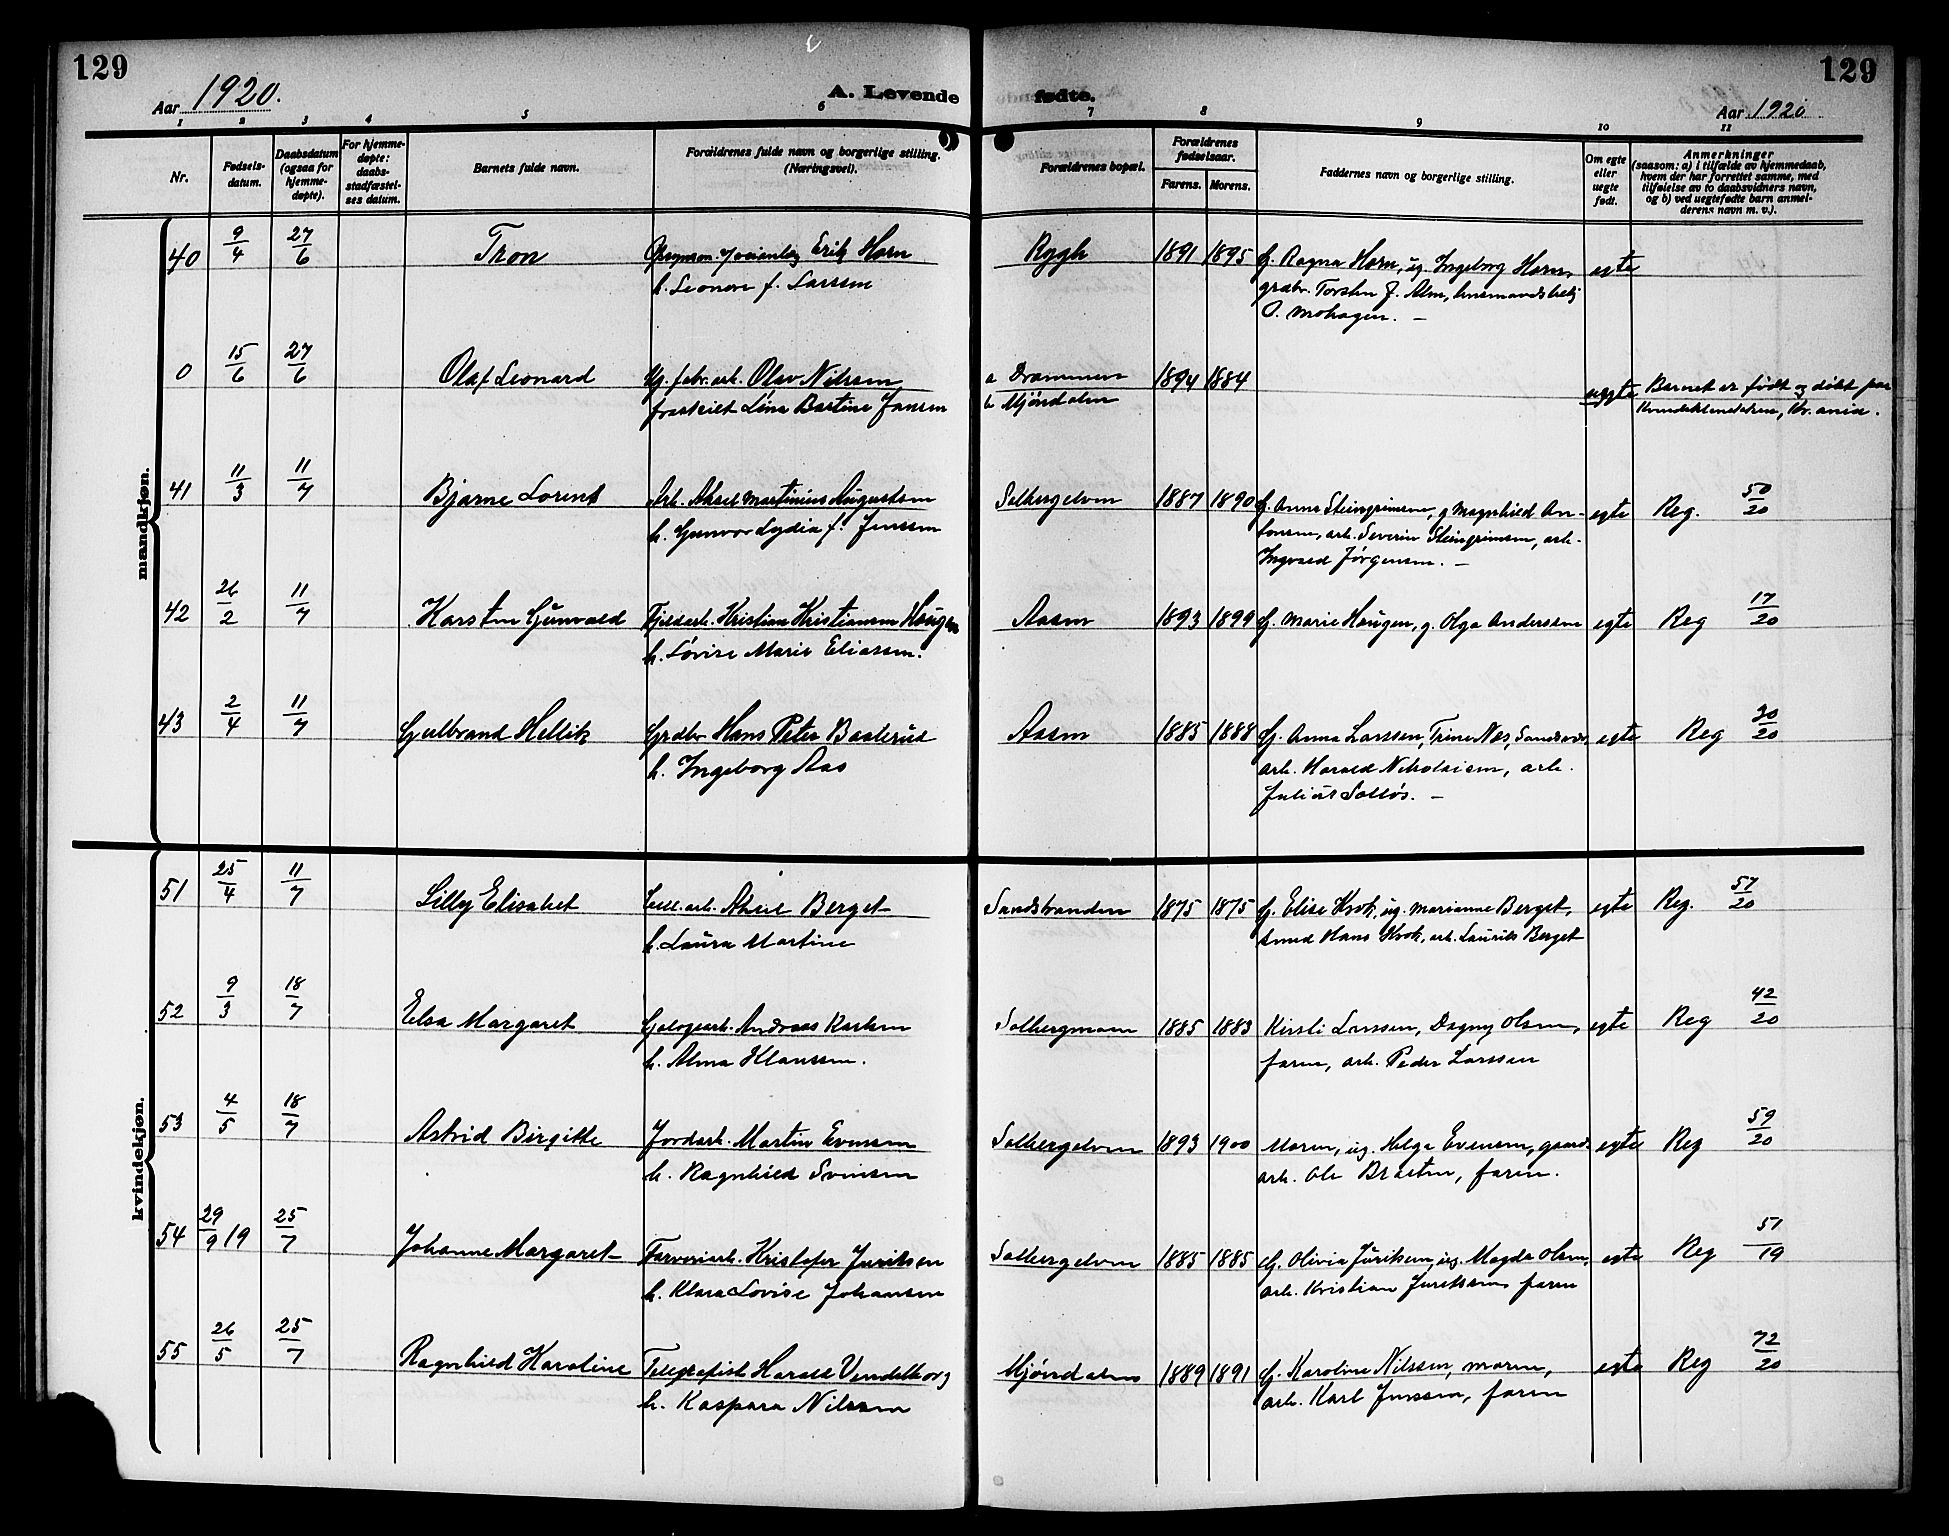 129
129
Aar 1920.
A. Levende fødte.
Aar 1920.
1 2 3 4 5 6 7 8 9 10 11
Nr.
Fødsels-
datum.
Daabsdatum
(ogsaa for
hjemme-
døpte).
For hjemme-
døpte:
daabs-
stadfæstel-
ses datum.
Barnets fulde navn.
Forældrenes fulde navn og borgerlige stilling.
(Næringsvei).
Forældrenes bopæl.
Forældrenes
fødselsaar.
Farens. Morens.
Faddernes navn og borgerlige stilling.
Om egte
eller
uegte
født.
Anmerkninger
(saasom: a) i tilfælde av hjemmedaab,
hvem der har forrettet samme, med
tilføielse av to daabsvidners navn,
og b) ved uegtefødte barn anmel-
derens navn m. v.).
mandkjøn.
40 9/4 27/6 Tron Erik Horn Rygh 1891 1895 f. Ragna Horn, ug. Ingeborg Horn, egte
h. Leonore f. Larssen grdbr. Torsten J. Alm, lensmandsbetj
O. Mohagen. –
0 15/6 27/6 Olaf Leonard Ug. fabr. arb. Olav Nilssen a Drammen 1894 1884 uegte Barnet er født og døbt paa
fraskilt Lina Bastine Jansen b Mjöndalen Kvindeklinikken, Kr.ania.
41 11/3 11/7 Bjarne Lorent Arb. Aksel Martinius Augustsen Solbergelven 1887 1890 f. Anna Steingrimsen, g Magnhild An- egte Reg. 50/20
h. Gunvor Lydia f. Jenssen tonsen, arb. Severin Steingrimsen, arb.
Ingvald Jørgensen. –
42 26/2 11/7 Karsten Gunvald Fjeldarb. Kristian Kristiansen Haugen Aasen 1893 1899 f. Marie Haugen, g. Olga Anderssen egte Reg 17/20
h. Lovise Marie Eliassen.
43 2/4 11/7 Gulbrand Hellik Grdbr Hans Peter Basterud Aasen 1885 1888 f. Anna Larssen, Trine Næs, Sandsvær, egte Reg 30/20
h. Ingeborg Aas arb. Harald Nikolaisen, arb.
Julius Solløs. –
kvindekjøn.
51 25/4 11/7 Lilly Elisabet Cell. arb. Aksel Berget Sandstranden 1875 1875 f. Elise Krok, ug. Marianne Berget, egte Reg. 57/20
h. Laura Martine smed Hans Krok, arb. Laurits Berget
52 9/3 18/7 Elsa Margaret Andreas Karlsen Solbergmoen 1885 1883 Kirsti Larssen, Dagny Olsen, egte Reg 42/20
h. Alma Klaussen. faren, arb. Peder Larssen
53 4/5 18/7 Astrid Birgitte Jordarb. Martin Evensen Solbergelven 1893 1900 Moren, ug. Helga Evensen, gaards- egte Reg 59/20
h. Ragnhild Svensen arb. Ole Braaten, faren.
54 29/9 19 25/7 Johanne Margaret Farveriarb. Kristofer Juriksen Solbergelven 1885 1885 f. Olivia Juriksen, ug. Magda Olsen, egte Reg 51/19
h. Klara Lovise Johansen arb. Kristian Juriksen, faren
55 26/5 25/7 Ragnhild Karoline Telegrafist Harald Vendelborg Mjöndalen 1889 1891 f. Karoline Nilssen, moren, egte Reg 72/20
h. Kaspara Nilssen arb. Karl Jenssen, faren